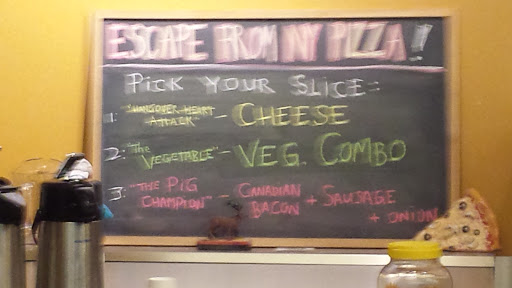 ESCAPE FROM NY PIZZA!!
PICK YOUR SLICE:
1: "HANGOVER HEART ATTACK" - CHEESE
2: "THE VEGETABLE" - VEG. COMBO
3: "THE PIG CHAMPION" - CANADIAN BACON + SAUSAGE + ONION